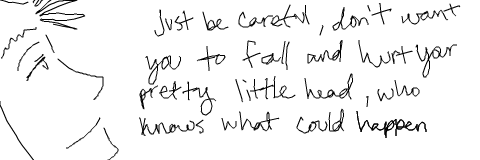 Just be careful, don't want
you to fall and hurt your
pretty little head, who
knows what could happen